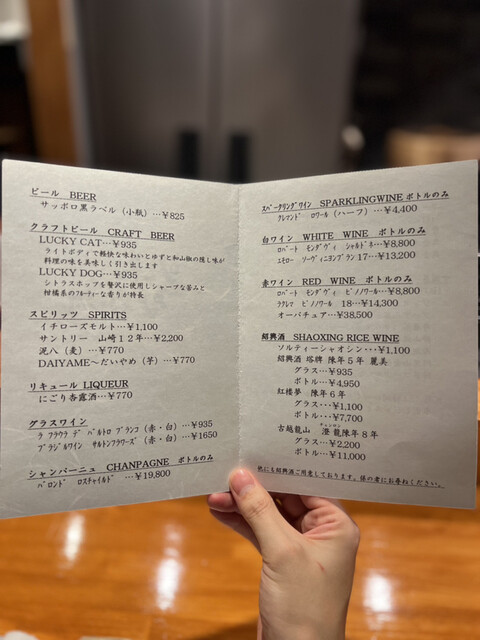 ビール BEER
サッポロ黒ラベル（小瓶）…¥825
クラフトビール CRAFT BEER
LUCKY CAT…¥935
ライトボディで軽快な味わいとゆずと和山椒の隠し味が
料理の味を美味しく引き出します
LUCKY DOG…¥935
シトラスホップを贅沢に使用しシャープな苦みと
柑橘系のフルーティーな香りが特長
スピリッツ SPIRITS
イチローズモルト…¥1,100
サントリー 山崎１２年…¥2,200
泥八（麦）…¥770
DAIYAME～だいやめ（芋）…¥770
リキュール LIQUEUR
にごり杏露酒…¥770
グラスワイン
ラ フラウラ デ パルトロ ブランコ（赤・白）…¥935
ブラジルワイン サルトンフラワーズ（赤・白）…¥1650
シャンパーニュ CHANPAGNE ボトルのみ
バロンド ロスチャイルド …¥19,800
スパークリングワイン SPARKLINGWINE ボトルのみ
クレマンド ロワール（ハーフ）…¥4,400
白ワイン WHITE WINE ボトルのみ
ロバート モンダヴィ シャルドネ…¥8,800
エモロー ソーヴィニヨンブラン 17…¥13,200
赤ワイン RED WINE ボトルのみ
ロバート モンダヴィ ピノノワール…¥8,800
ラクレマ ピノノワール 18…¥14,300
オーバチュア…¥38,500
紹興酒 SHAOXING RICE WINE
ソルティーシャオシン・・・¥1,100
紹興酒 塔牌 陳年５年 麗美
グラス…¥935
ボトル…¥4,950
紅楼夢 陳年６年
グラス・・・¥1,100
ボトル・・・¥7,700
古越龍山 澄龍陳年８年
グラス…¥2,200
ボトル…¥11,000
他にも紹興酒ご用意しております。係の者にお尋ねください。